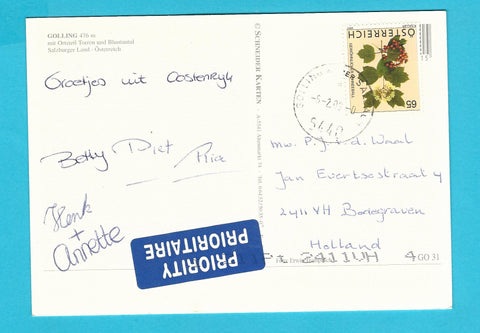 GOLLING 476 m
mit Ortsteil Torren und Bluntautal
Salzburger Land - Österreich
Groetjes uit Oostenrijk
Betty Piet Mia
Henk
+
Annette
© SCHNEIDER KARTEN
ÖSTERREICH
65
5440
mw. P.J. v.d. Waal
Jan Evertsestraat 4
2411 VH Bodegraven
Holland
PRIORITY
PRIORITAIRE
2411VH 4
GO 31